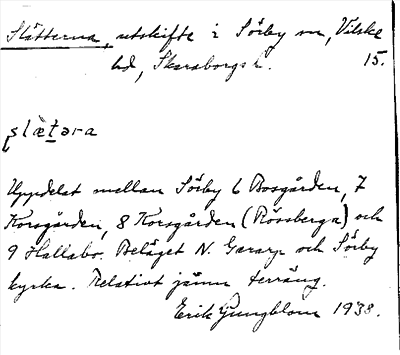 Slätterna, utskifte i Sörby sn, Vilske
hd, Skaraborgs l. 15.
slætəra
Uppdelat mellan Sörby 6 Bosgården, 7
Korsgården, 8 Korsgården (Rössberga) och
9 Hallabo. Beläget N. Gararp och Sörby
kyrka. Relativt jämn terräng.
Erik Ljungblom 1938.